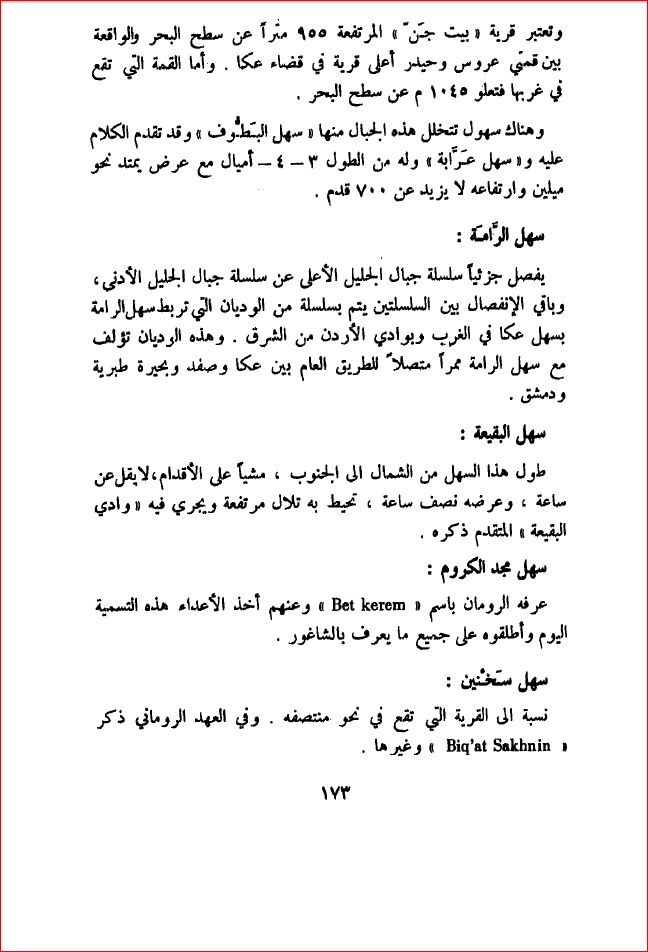 وتعتبر قرية « بيت جَنّ » المرتفعة ٩٥٥ متراً عن سطح البحر والواقعة
بين قمتي عروس وحيدر أعلى قرية في قضاء عكا . وأما القمة التي تقع
في غربها فتعلو ١٠٤٥ م عن سطح البحر .
وهناك سهول تتخلل هذه الجبال منها « سهل البَطُّوف » وقد تقدم الكلام
عليه و« سهل عَرَّابة » وله من الطول ٣ – ٤ – أميال مع عرض يمتد نحو
ميلين وارتفاعه لا يزيد عن ٧٠٠ قدم .
سهل الرَّامة :
يفصل جزئياً سلسلة جبال الجليل الأعلى عن سلسلة جبال الجليل الأدنى ،
وباقي الإنفصال بين السلسلتين يتم بسلسلة من الوديان التي تربط سهل الرامة
بسهل عكا في الغرب وبوادي الأردن من الشرق . وهذه الوديان تؤلف
مع سهل الرامة ممراً متصلاً للطريق العام بين عكا وصفد وبحيرة طبرية
ودمشق .
سهل البقيعة :
طول هذا السهل من الشمال الى الجنوب ، مشياً على الأقدام ، لا يقل عن
ساعة ، وعرضه نصف ساعة ، تحيط به تلال مرتفعة ويجري فيه « وادي
البقيعة » المتقدم ذكره .
سهل مجد الكروم :
عرفه الرومان باسم « Bet kerem » وعنهم أخذ الأعداء هذه التسمية
اليوم وأطلقوه على جميع ما يعرف بالشاغور .
سهل سَخْنين :
نسبة الى القرية التي تقع في نحو منتصفه . وفي العهد الروماني ذكر
« Biq'at Sakhnin » وغيرها .
١٧٣